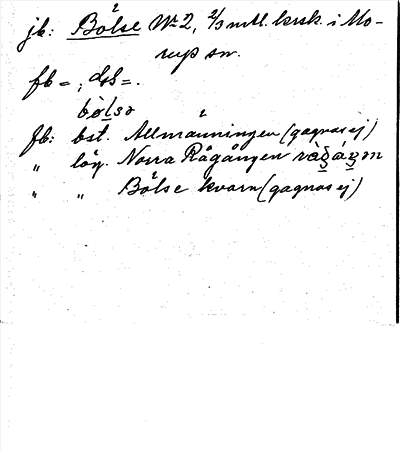 jb: Bölse No 2, 2/3 mtl. krsk. i Mo-
rup sn.
fb = ; dsb =.
bø̀lsə
fb: bst. Allmänningen (gagnas ej)
„ läg. Norra Rågången
„ „ Bölse kvarn (gagnas ej)